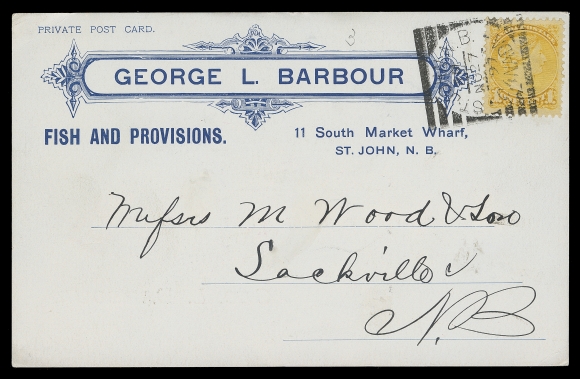 PRIVATE POST CARD.
GEORGE L. BARBOUR
FISH AND PROVISIONS.
11 South Market Wharf,
ST. JOHN, N. B.
3
Messrs M Wood & Son
Sackville
N.B